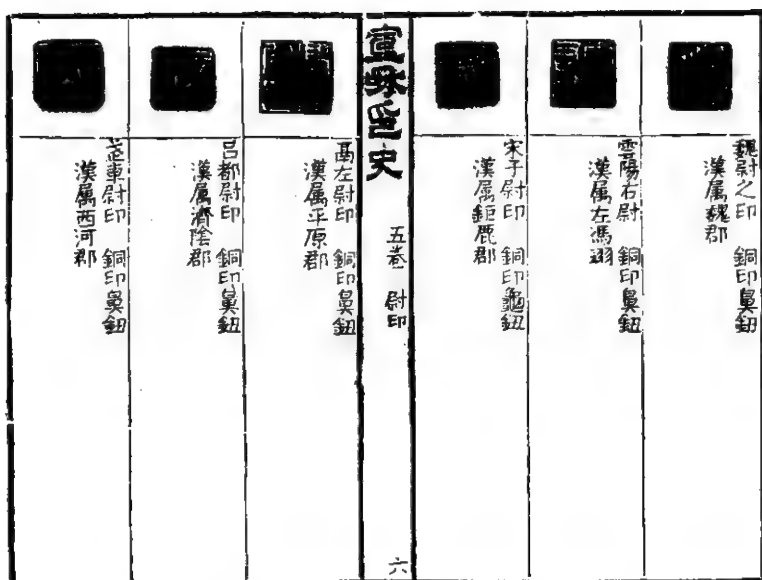 魏尉之印 銅印鼻鈕
漢属魏郡
雲陽右尉 銅印鼻鈕
漢属左馮翊
宋子尉印 銅印龜鈕
漢属鉅鹿郡
宣和印史 五卷 尉印 六
鬲左尉印 銅印鼻鈕
漢属平原郡
呂都尉印 銅印鼻鈕
漢属濟陰郡
車尉印 銅印鼻鈕
漢属西河郡